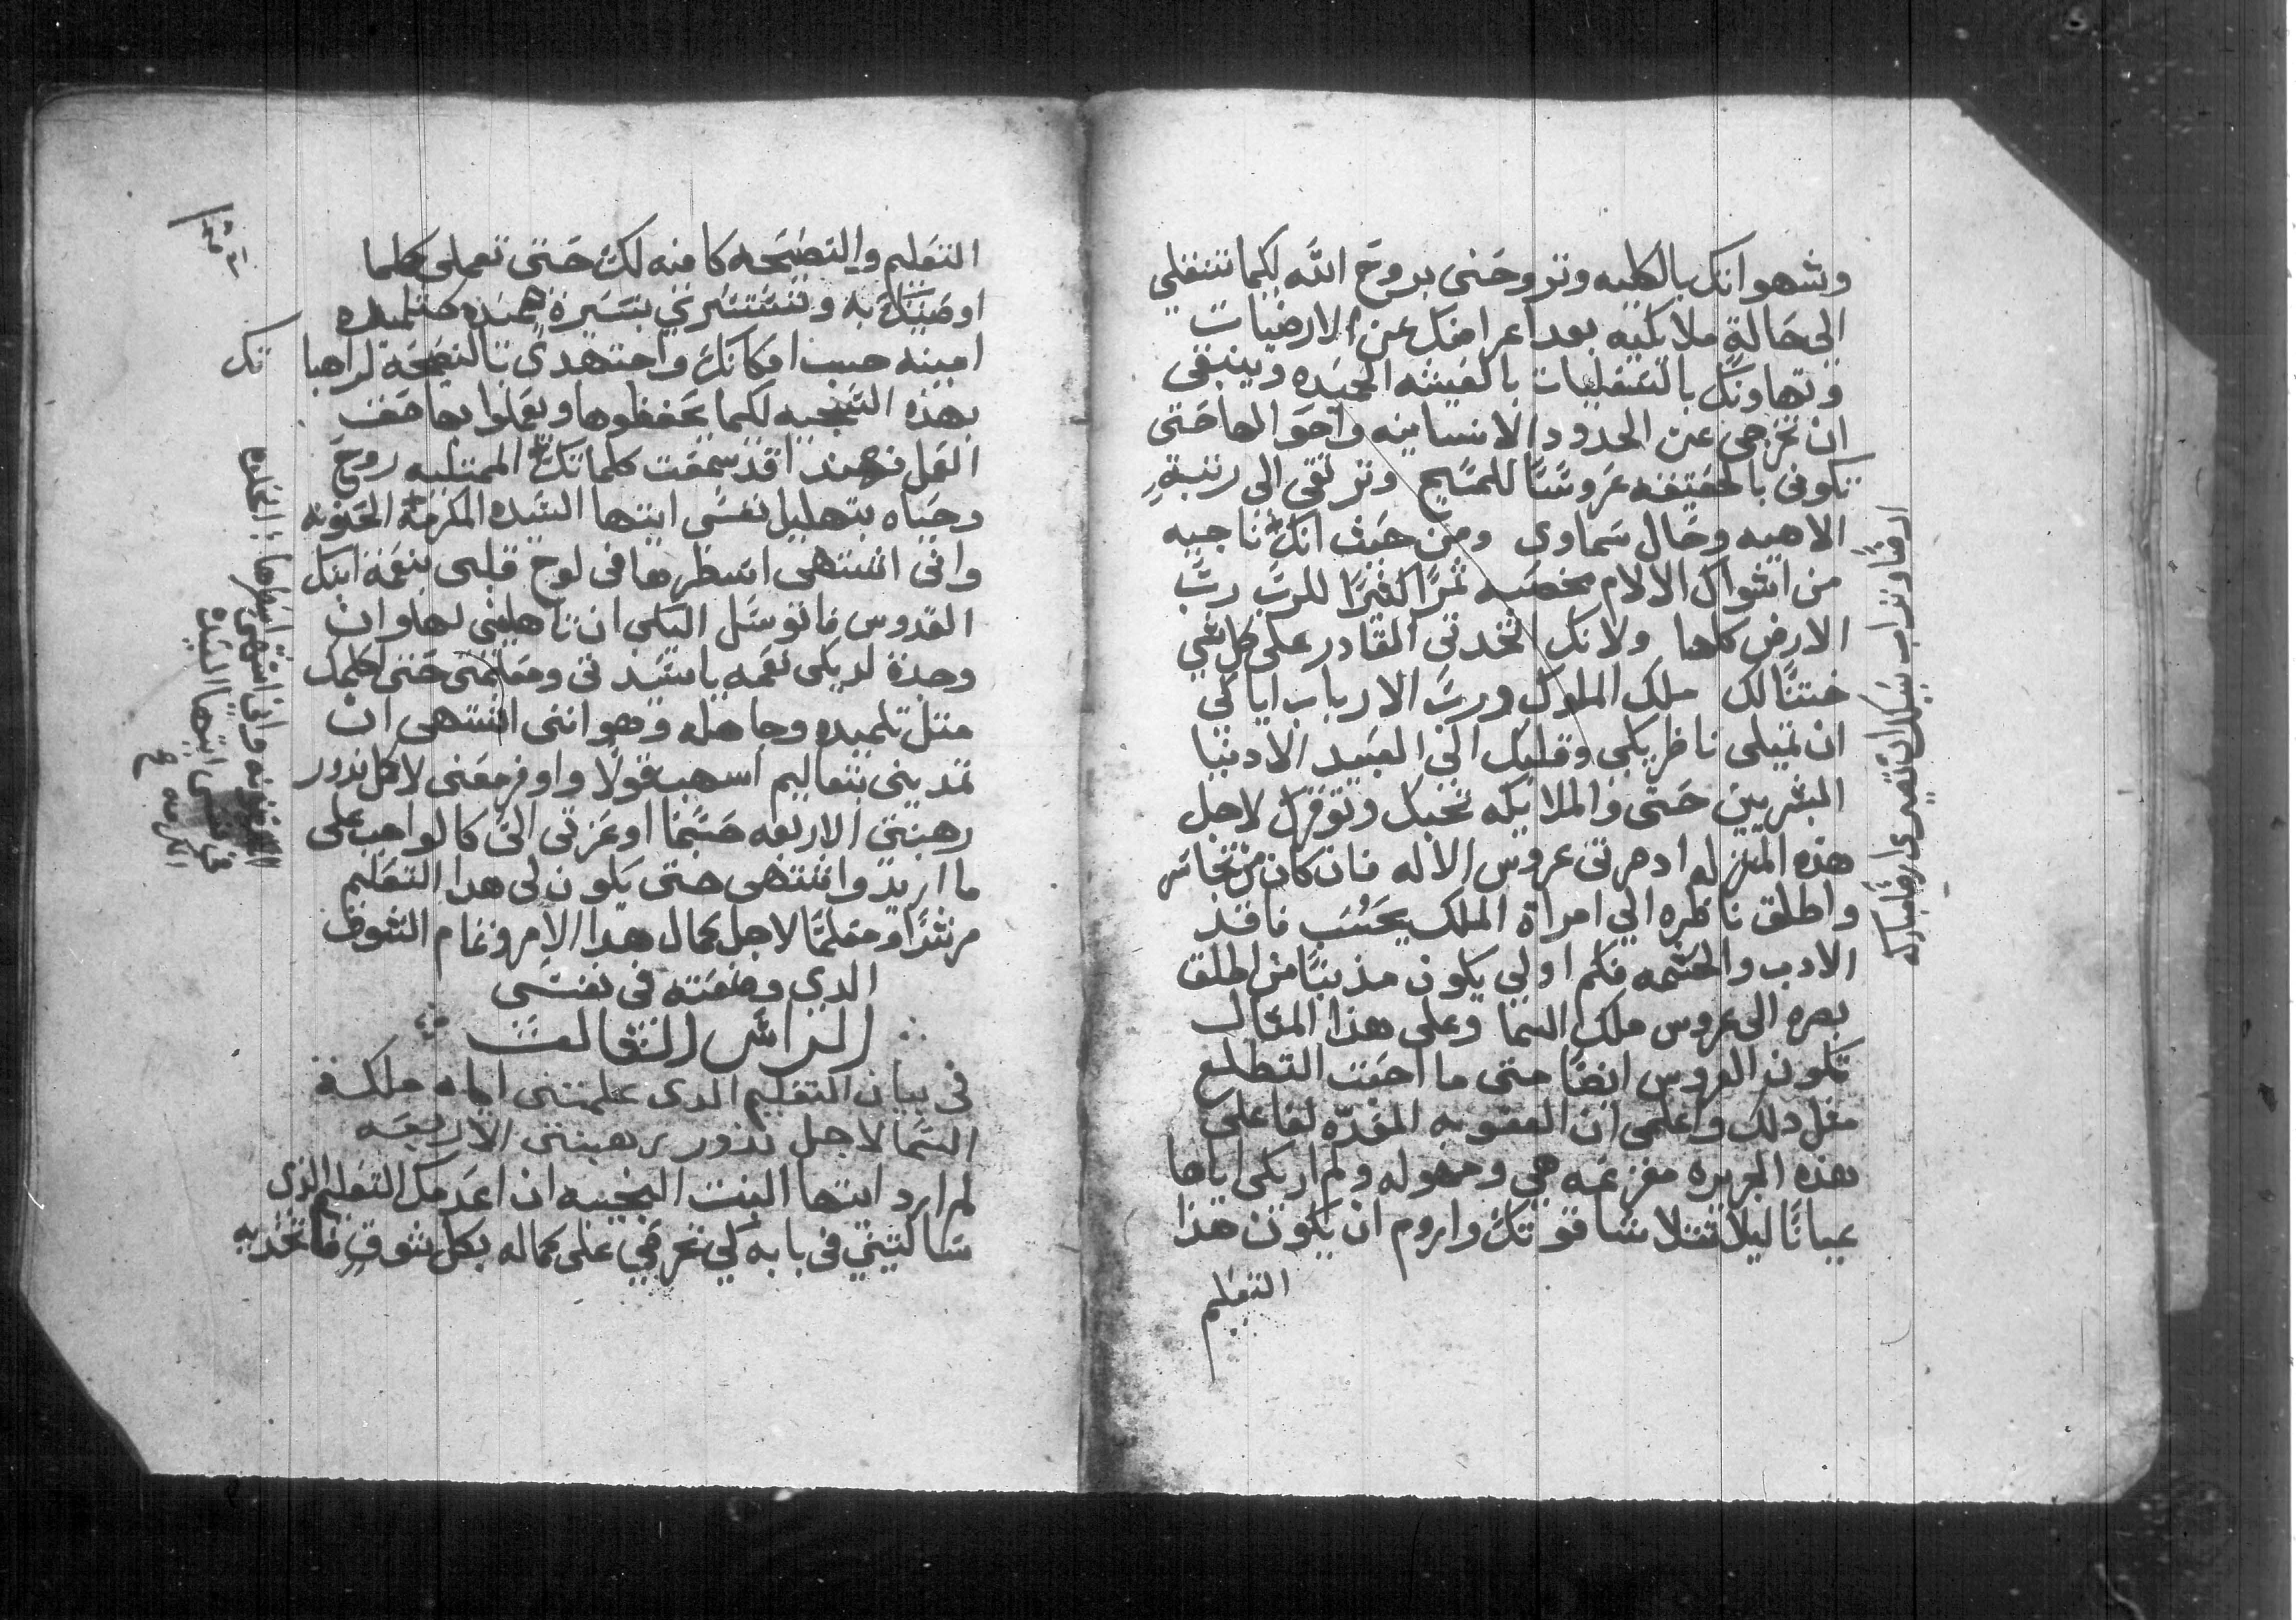 وشهواتك بالكليه وتروحني بروح الله لكيما تنتقلي
الى حالةٍ ملايكيه بعد اعراضك عن الارضيات
وتهاونك بالسفليات بالعيشه الحميده وينبغى
ان تخرجى عن الحدود الانسانيه واحوالها حتى
تكونى بالحقيقه عروسًا للمسيح وترتقى الى رتبةٍ
الاهيه وحال سماوى ومن حيث انك ناجيه
من اشواك الالام مخصبه ثمرًا كثيرًا للرب رب
الارض كلها ولانك اتخدتى القادر على كل شي
ختنًا لك ملك الملوك ورب الارباب اياكى
ان تميلى ناظريكى وقلبك الى العبيد الادنيا
البشريين حتى والملايكه تحبك وتوقرك لاجل
هذه المنزله ادصرتى عروس الاله فان كان من تجاسر
واطلق ناظره الي امراة الملك يحسب فاقد
الادب والحشمه فكم اولي يكون مذنبًا من اطلق
بصره الى عروس ملك السما وعلى هذا المثال
تكون العروس ايضًا متى ما احبت التطلع
مثل دلك واعلمى ان العقوبه المعده لقا على
هذه الجريره مفزعه هي ومهوله ولم اريكى اياها
عيانًا ليلا تتلاشا قوتك واروم ان يكون هذا
التعليم
ارضًا وتراب يمكن ان تصيرى ارضًا مباركه
التعليم والنصيحه كافيه لك حتى تعملى كلما
اوصيتك به وتتسيري بسيرة حميده كتلميده
امينه حسب امكانك واجتهدى بالنصيحه لراهبا
تك
بهذه السجيه لكيما يحفظوها ويعملوا بها حق
العمل فهنداقد سمعت كلماتك الممتليه روح
وحياه بتهليل نفسى ايتها السيده المكرمه الحنونه
وانى اشتهى اسطرها فى لوح قلبى بنعمة ابنك
القدوس فاتوسل اليكى ان تاهلينى لها وان
وجدة لديكى نعمه ياسيدتى ومعلمتى حتى اكلمك
مثل تلميده وجاهله وهو اننى اشتهى ان
تمدينى بتعاليم اسهب قولًا واوفر معنى لاجل ندور
رهبنتى الاربعه حسبما اوعزتى الى كالواجب على
ما اريد واشتهى حتى يكون لى هدا التعليم
مرشدًا ومعلمًا لاجل كمال هدا الامر وتمام الشوق
الدى وضعته فى نفسى
الراس الثالث
فى بيان التعليم الدى علمتنى اياه ملكة
السما لاجل ندور رهبنتى الاربعه
لم ارد ايتها البنت الحبيبه ان اعدمك التعليم الذى
سالتينى فى بابه لكي تعرفي على كماله بكل شوقٍ فاتخديه